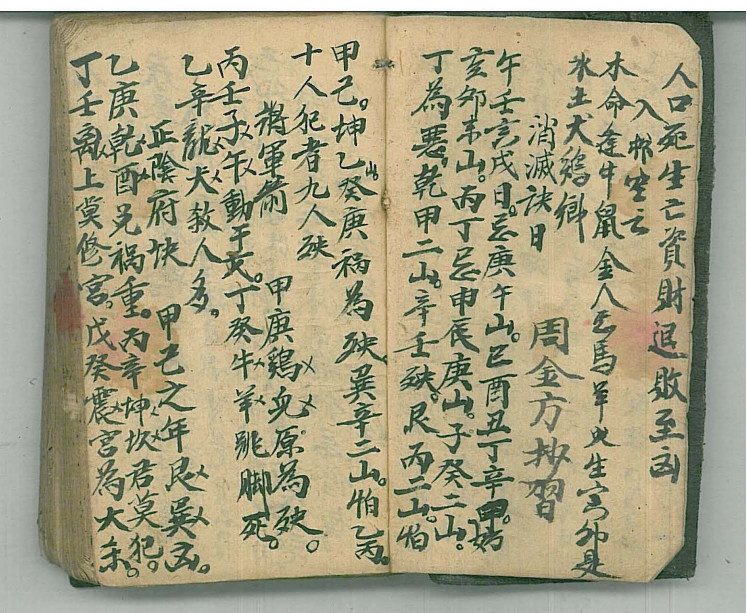 人口死生亡資財退敗至凶
入
木命逢牛鼠金人忌馬羊火生寅卯是
水土犬鷄鄉
消滅訣曰
周金方抄習
午壬言戌日。忌庚午山。巳酉丑丁辛甲。妨
亥卯未山。丙丁忌申辰庚山。子癸二山。
丁為悪。乾甲二山。辛壬殃。艮丙二山。怕
甲己。坤乙癸庚山禍為殃。巽辛二山。怕乙丙。
十人犯者九人殃
將軍箭
甲庚鷄兔原為殃。
丙壬子午動干戈。丁癸牛羊跳脚死。
乙辛龍犬殺人多。
正陰府訣
甲己之年艮巽凶。
乙庚乾酉兑禍重。丙辛坤坎君莫犯。
丁壬離上莫修宮。戊癸震宮為大